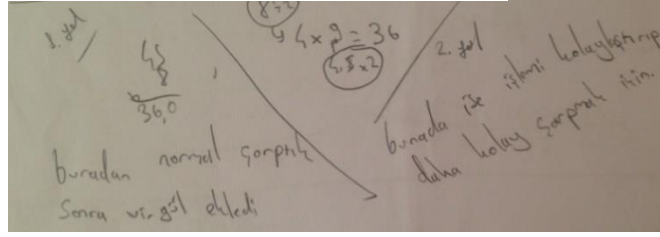 1. yol
36,0
buradan normal çarptık
Sonra virgül ekledi
8x2
4 4x9=36
4.5x2
2. yol
burada ise işlemi kolaylaştırıp
daha kolay çarpmak için.